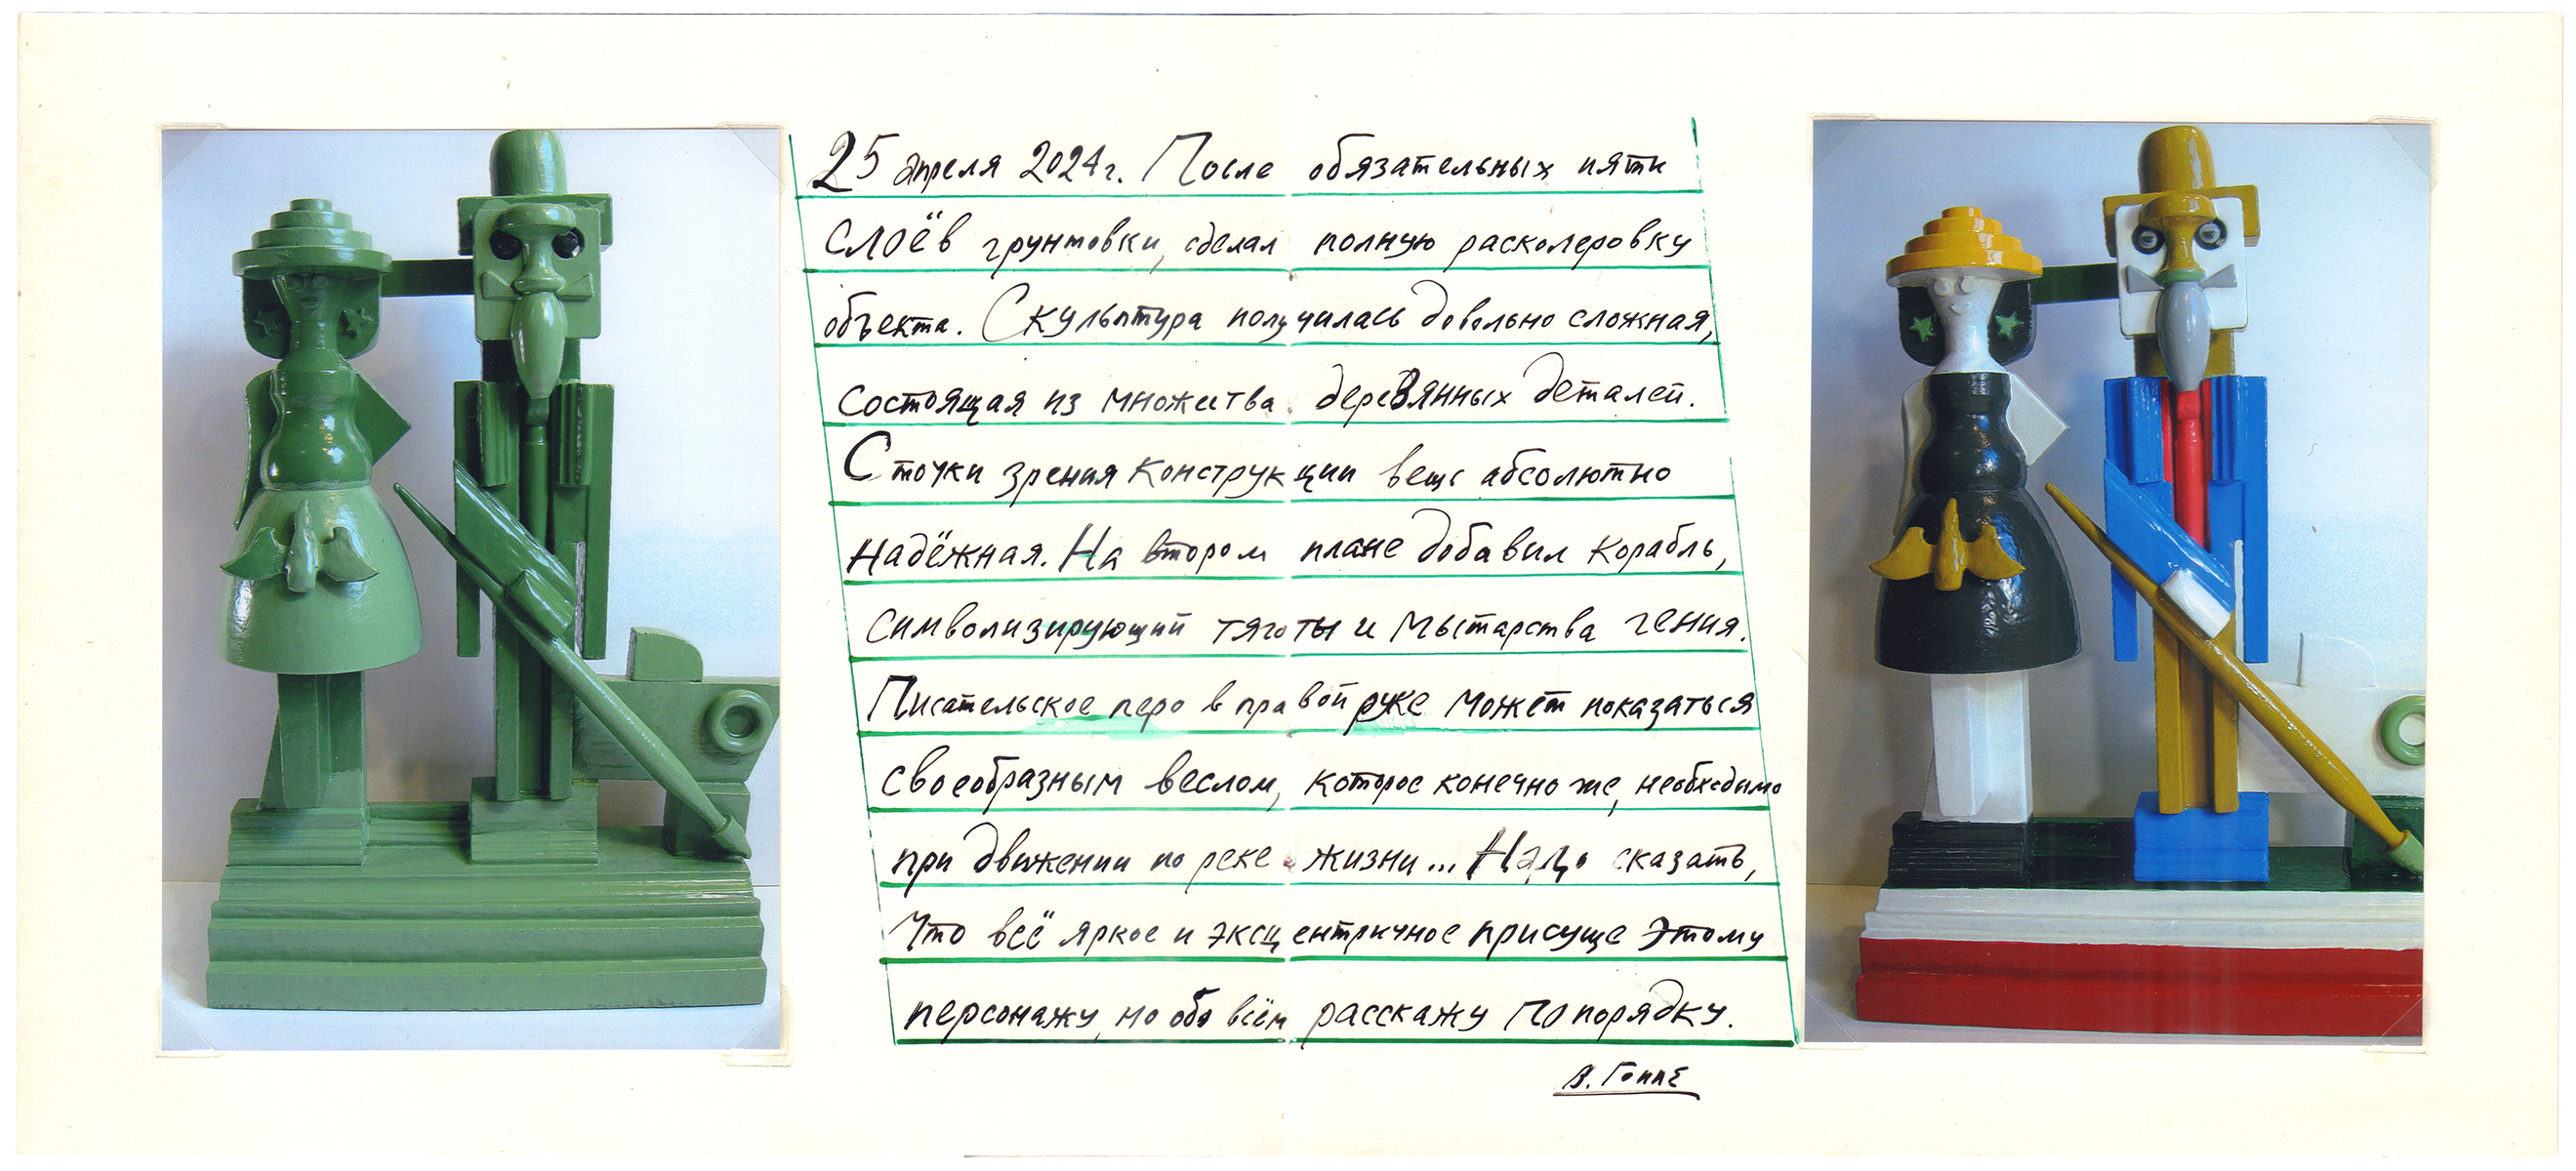 25 апреля 2024г. После обязательных пяти
слоёв грунтовки, сделал полную расколеровку
объекта. Скульптура получилась довольно сложная,
состоящая из множества деревянных деталей.
С точки зрения конструкции вещь абсолютно
надёжная. На втором плане добавил корабль,
символизирующий тяготы и мытарства гения.
Писательское перо в правой руке может показаться
своеобразным веслом, которое конечно же, необходимо
при движении по реке жизни... Надо сказать,
что всё яркое и эксцентричное присуще этому
персонажу, но обо всём расскажу по порядку.
В. Гоппе